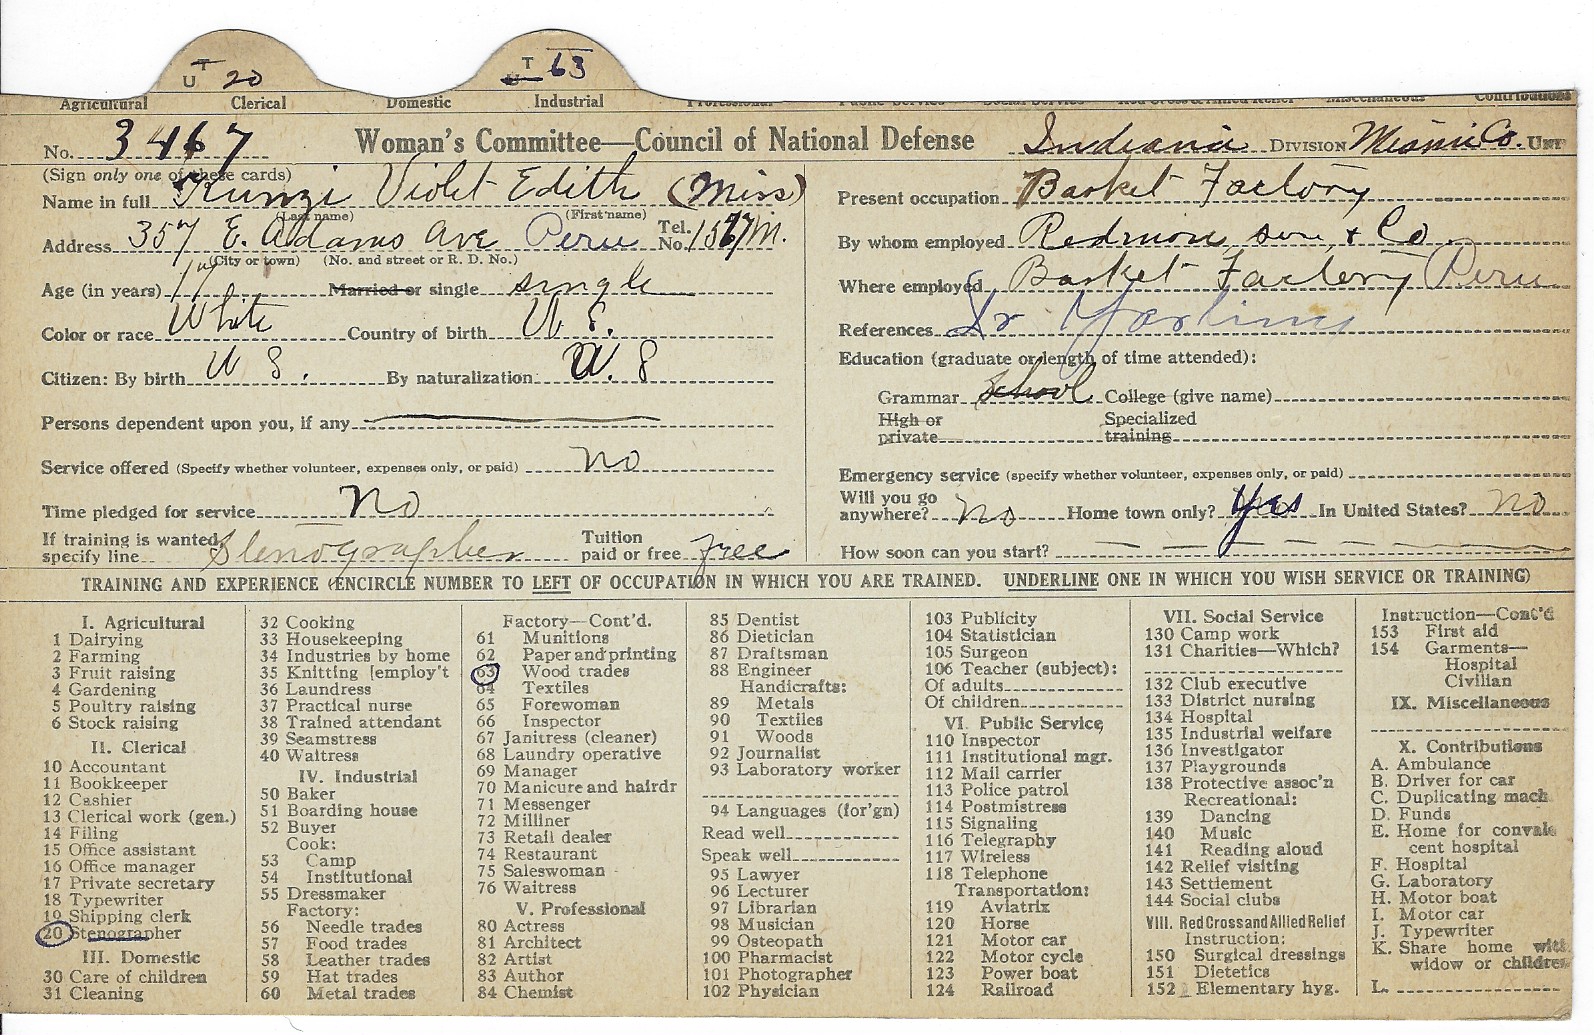 U T 20 T 63
Agricultural Clerical Domestic Industrial Professional Public Service Social Service Red Cross & Allied Relief Miscellaneous Contributions
No. 3467 Woman's Committee—Council of National Defense Indiana DIVISION Miami Co. UNIT
(Sign only one of these cards)
Name in full Kunzi Violet Edith (Miss)
(Last name) (First name)
Address 357 E. Adams Ave Peru Tel. No. 1567 M.
(City or town) (No. and street or R. D. No.)
Age (in years) 17 Married or single single
Color or race White Country of birth U S.
Citizen: By birth U S. By naturalization U. S
Persons dependent upon you, if any
Service offered (Specify whether volunteer, expenses only, or paid) no
Time pledged for service no
If training is wanted, specify line Stenographer Tuition paid or free free
Present occupation Basket Factory
By whom employed Redmon & Co.
Where employed Basket Factory Peru
References Dr Yarling
Education (graduate or length of time attended):
Grammar School College (give name)
High or private Specialized training
Emergency service (specify whether volunteer, expenses only, or paid)
Will you go anywhere? no Home town only? Yes In United States? no
How soon can you start?
TRAINING AND EXPERIENCE (ENCIRCLE NUMBER TO LEFT OF OCCUPATION IN WHICH YOU ARE TRAINED. UNDERLINE ONE IN WHICH YOU WISH SERVICE OR TRAINING)
I. Agricultural
1 Dairying
2 Farming
3 Fruit raising
4 Gardening
5 Poultry raising
6 Stock raising
II. Clerical
10 Accountant
11 Bookkeeper
12 Cashier
13 Clerical work (gen.)
14 Filing
15 Office assistant
16 Office manager
17 Private secretary
18 Typewriter
19 Shipping clerk
20 Stenographer
III. Domestic
30 Care of children
31 Cleaning
32 Cooking
33 Housekeeping
34 Industries by home
35 Knitting [employ't
36 Laundress
37 Practical nurse
38 Trained attendant
39 Seamstress
40 Waitress
IV. Industrial
50 Baker
51 Boarding house
52 Buyer
Cook:
53 Camp
54 Institutional
55 Dressmaker
Factory:
56 Needle trades
57 Food trades
58 Leather trades
59 Hat trades
60 Metal trades
Factory—Cont'd.
61 Munitions
62 Paper and printing
63 Wood trades
64 Textiles
65 Forewoman
66 Inspector
67 Janitress (cleaner)
68 Laundry operative
69 Manager
70 Manicure and hairdr
71 Messenger
72 Milliner
73 Retail dealer
74 Restaurant
75 Saleswoman
76 Waitress
V. Professional
80 Actress
81 Architect
82 Artist
83 Author
84 Chemist
85 Dentist
86 Dietician
87 Draftsman
88 Engineer
Handicrafts:
89 Metals
90 Textiles
91 Woods
92 Journalist
93 Laboratory worker
94 Languages (for'gn)
Read well
Speak well
95 Lawyer
96 Lecturer
97 Librarian
98 Musician
99 Osteopath
100 Pharmacist
101 Photographer
102 Physician
103 Publicity
104 Statistician
105 Surgeon
106 Teacher (subject):
Of adults
Of children
VI. Public Service
110 Inspector
111 Institutional mgr.
112 Mail carrier
113 Police patrol
114 Postmistress
115 Signaling
116 Telegraphy
117 Wireless
118 Telephone
Transportation:
119 Aviatrix
120 Horse
121 Motor car
122 Motor cycle
123 Power boat
124 Railroad
VII. Social Service
130 Camp work
131 Charities—Which?
132 Club executive
133 District nursing
134 Hospital
135 Industrial welfare
136 Investigator
137 Playgrounds
138 Protective assoc'n
Recreational:
139 Dancing
140 Music
141 Reading aloud
142 Relief visiting
143 Settlement
144 Social clubs
VIII. Red Cross and Allied Relief
Instruction:
150 Surgical dressings
151 Dietetics
152 Elementary hyg.
Instruction—Cont'd
153 First aid
154 Garments—
Hospital
Civilian
IX. Miscellaneous
X. Contributions
A. Ambulance
B. Driver for car
C. Duplicating mach
D. Funds
E. Home for convale
cent hospital
F. Hospital
G. Laboratory
H. Motor boat
I. Motor car
J. Typewriter
K. Share home with
widow or children
L.